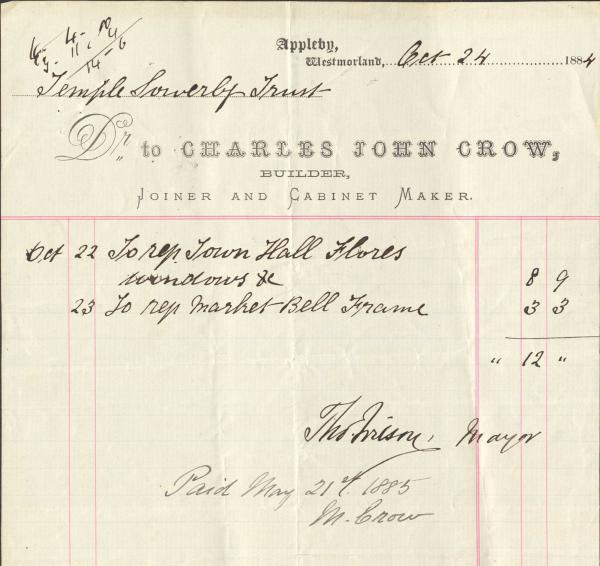 Appleby,
Westmorland, Oct 24 1884
4 - 10
11 . 4
14 - 6
Temple Sowerby Trust
Dr. to CHARLES JOHN CROW,
BUILDER,
JOINER AND CABINET MAKER.
Oct 22 To rep. Town Hall Flores
windows &c 8 9
23 To rep Market Bell Frame 3 3
" 12 "
Mayor
Paid May 21st. 1885
M. Crow